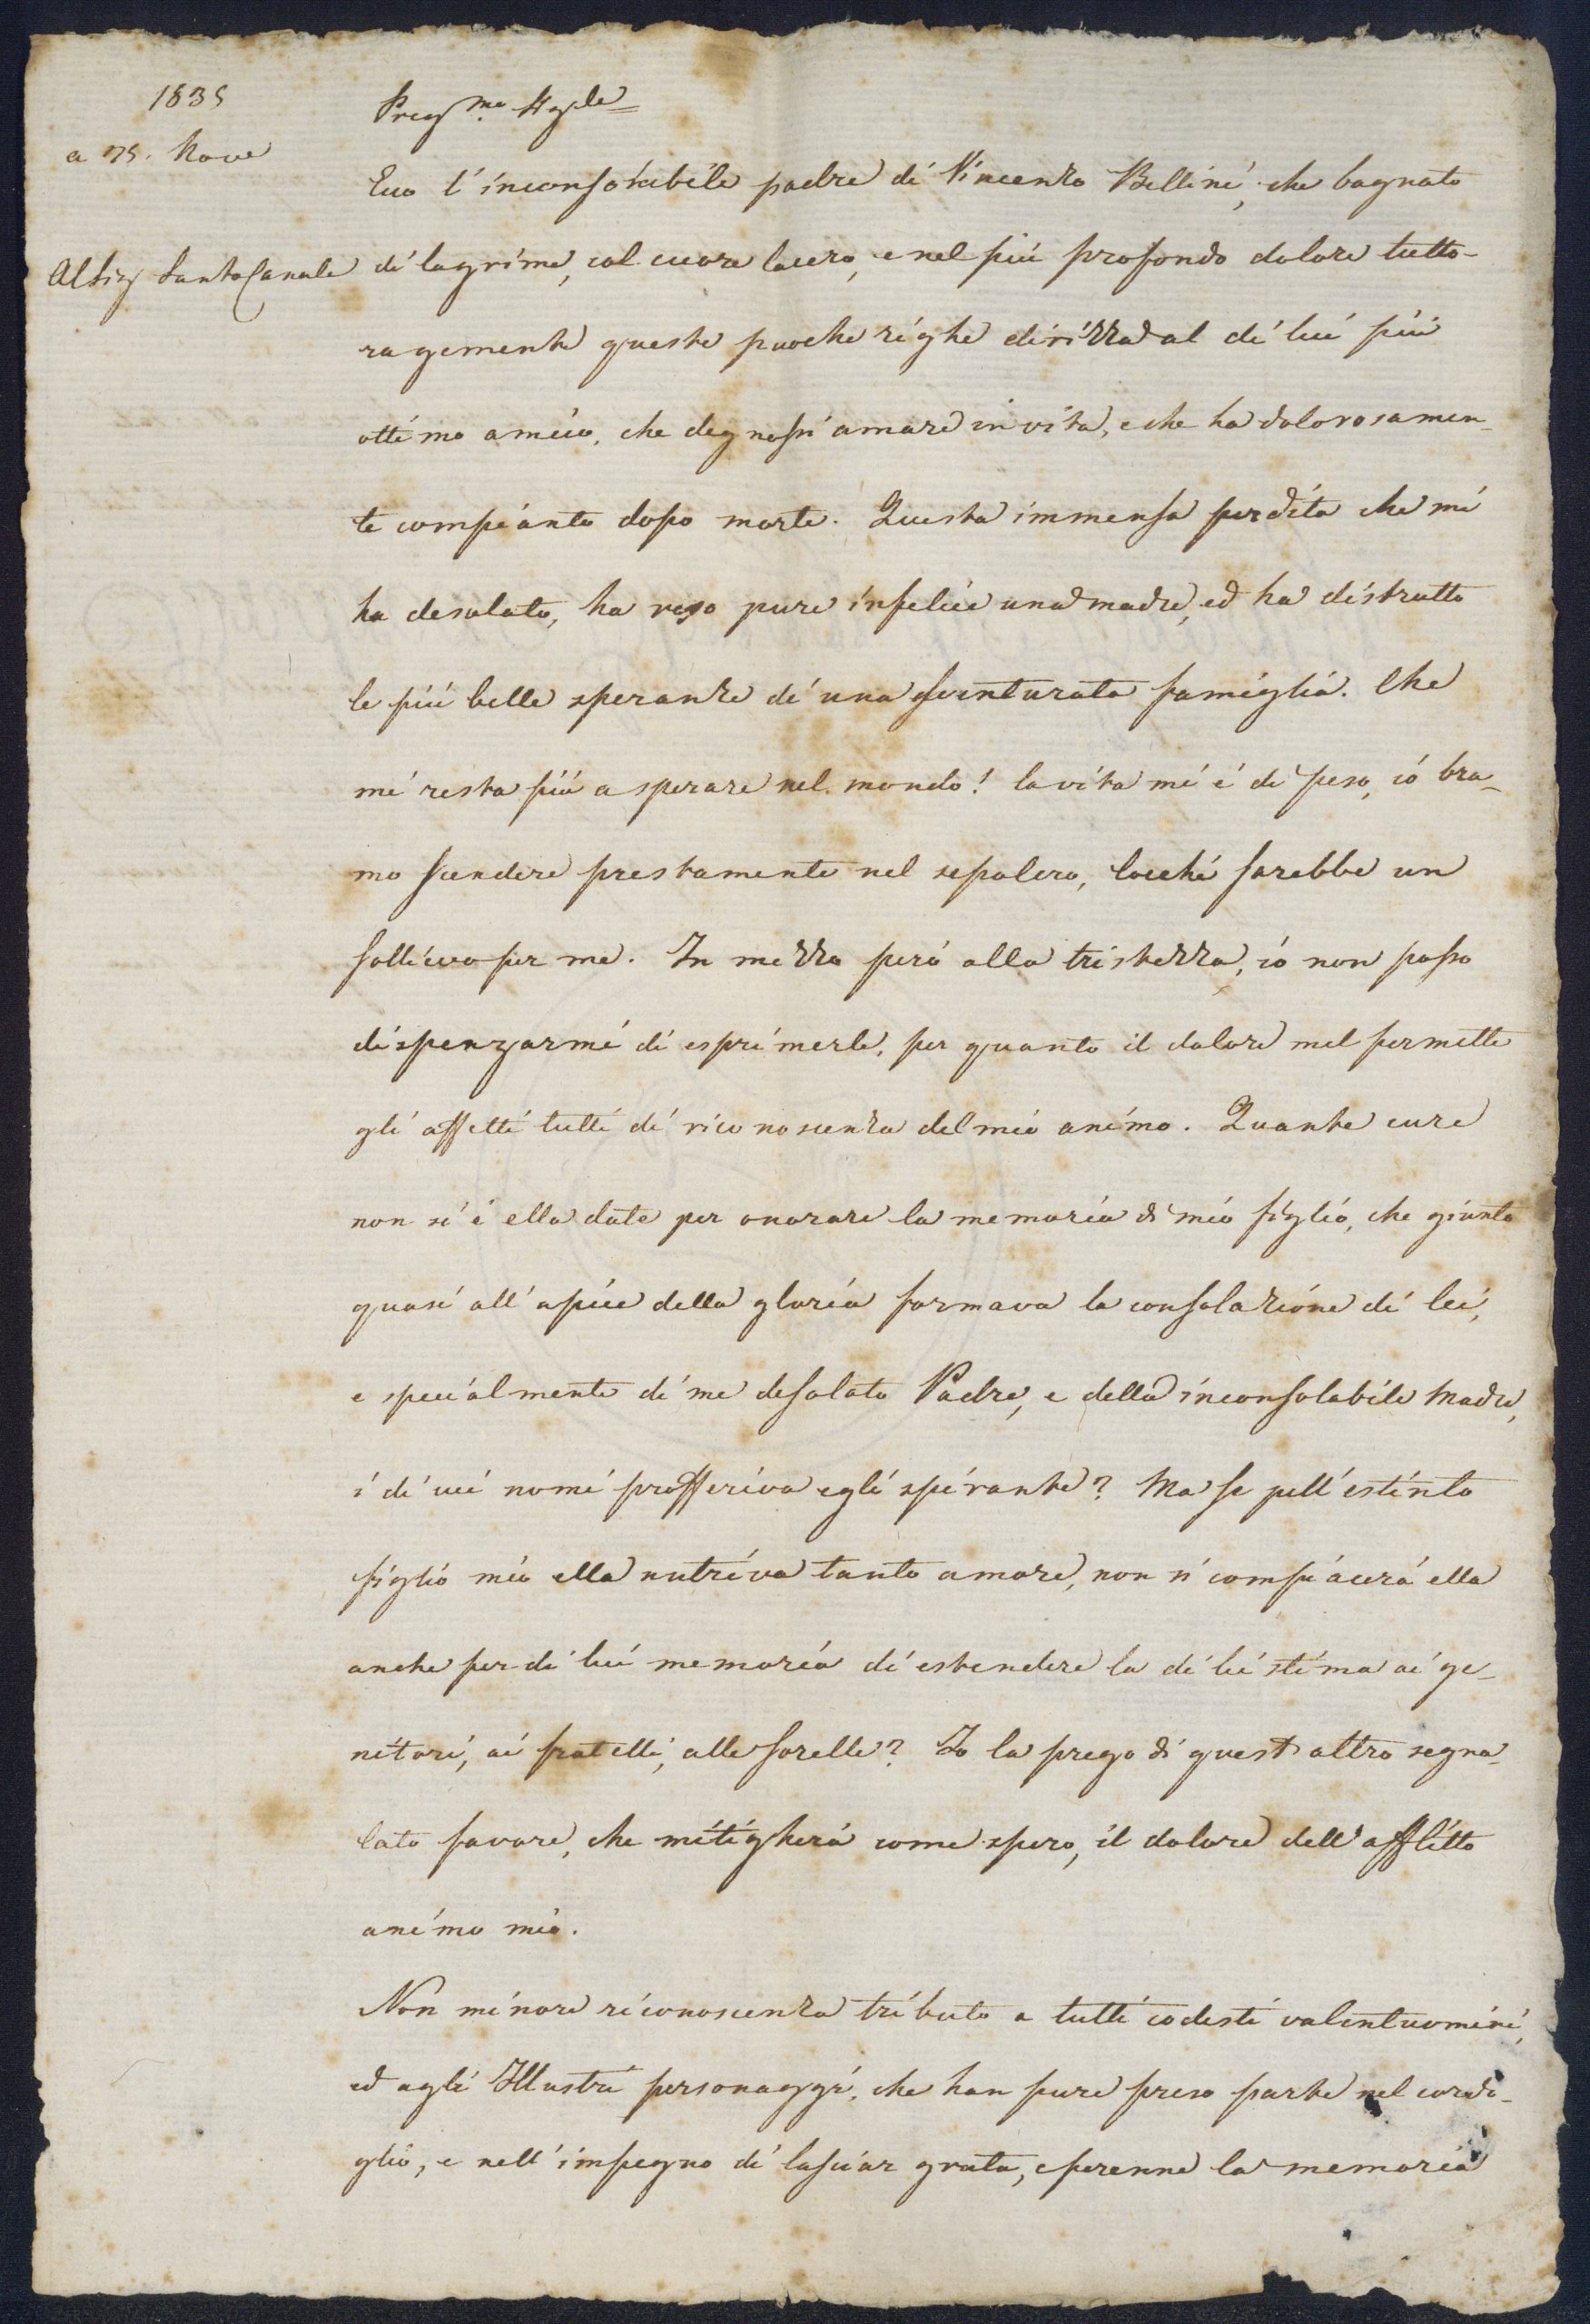 1835
a 25. Nove
Al Sig Santo Canale
Preg.mo
Ecco l'inconsolabile padre di Vincenzo Bellini, che bagnato
di lagrime, col cuore lacero, e nel più profondo dolore tutto-
ra gemente queste puoche righe dirizza al di lui più
ottimo amico, che degnossi amare in vita, e che ha dolorosamen-
te compianto dopo morte. Questa immensa perdita che mi
ha desolato, ha reso pure infelice una madre, ed ha distrutto
le più belle speranze di una sventurata famiglia. Che
mi resta più a sperare nel mondo! la vita mi è di peso, io bra-
mo scendere prestamente nel sepolcro, locché sarebbe un
sollievo per me. In mezzo però alla tristezza, io non posso
dispenzarmi di esprimerle, per quanto il dolore mel permette
gli affetti tutti di riconoscenza del mio animo. Quante cure
non si è ella date per onorare la memoria di mio figlio, che giunto
quasi all'apice della gloria formava la consolazione di lei,
e specialmente di me desolato Padre, e della inconsolabile Madre,
i di cui nomi profferiva egli spirante? Ma se pell'estinto
figlio mio ella nutriva tanto amore, non si compiacerà ella
anche per di lui memoria di estendere la di lei stima ai ge-
nitori, ai fratelli, alle sorelle? Io la prego di quest altro segna-
lato favore, che mitigherà come spero, il dolore dell'afflitto
animo mio.
Non minore riconoscenza tributo a tutti codesti valentuomini,
ed agli Illustri personaggi, che han pure preso parte nel cordo-
glio, e nell'impegno di lasciar grata, e perenne la memoria